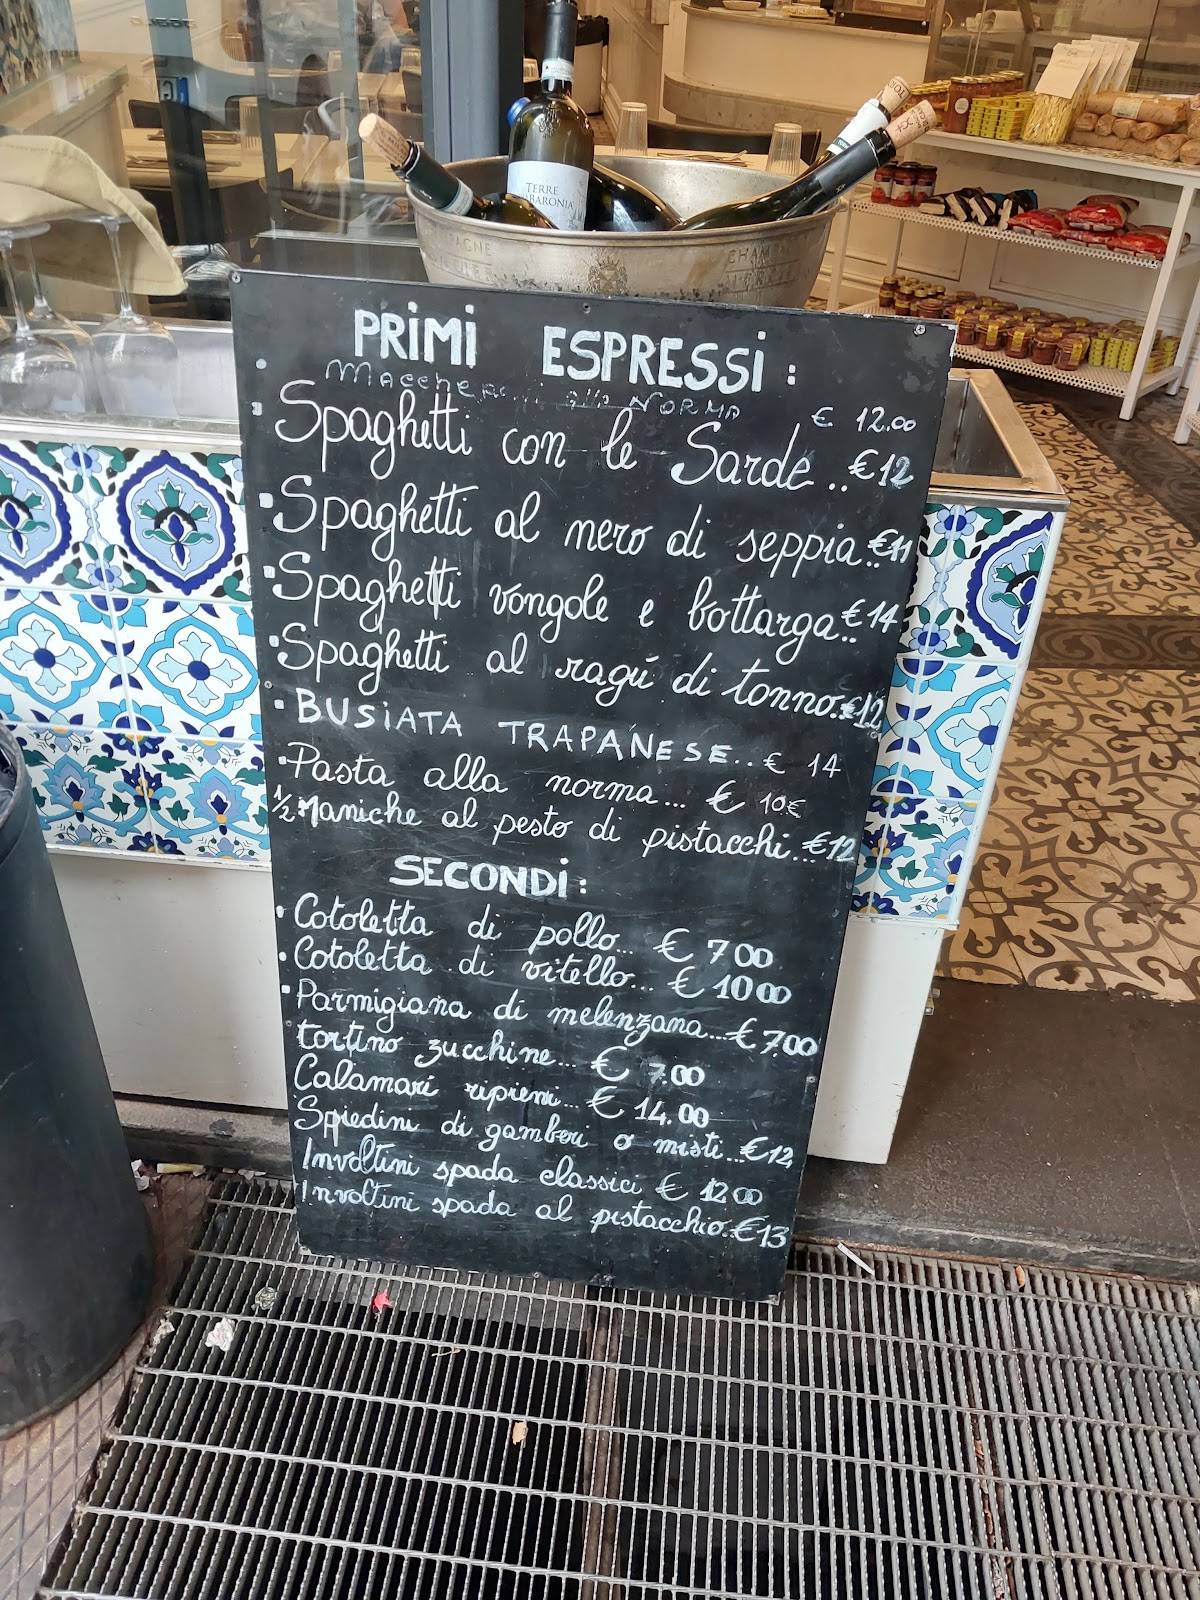 TERRE
BARONIA
CHAM
PRIMI ESPRESSI:
Maccheroni alla NORMA € 12.00
Spaghetti con le Sarde..€12
Spaghetti al nero di seppia..€11
Spaghetti vongole e bottarga..€14
Spaghetti al ragú di tonno..€12
BUSIATA TRAPANESE..€ 14
Pasta alla norma... € 10€
1/2 Maniche al pesto di pistacchi..€12
SECONDI:
Cotoletta di pollo... € 7 00
Cotoletta di vitello... € 10 00
Parmigiana di melenzana...€ 7.00
tortino zucchine... € 7.00
Calamari ripieni... € 14.00
Spiedini di gamberi o misti...€12
Involtini spada classici € 12 00
Involtini spada al pistacchio..€13